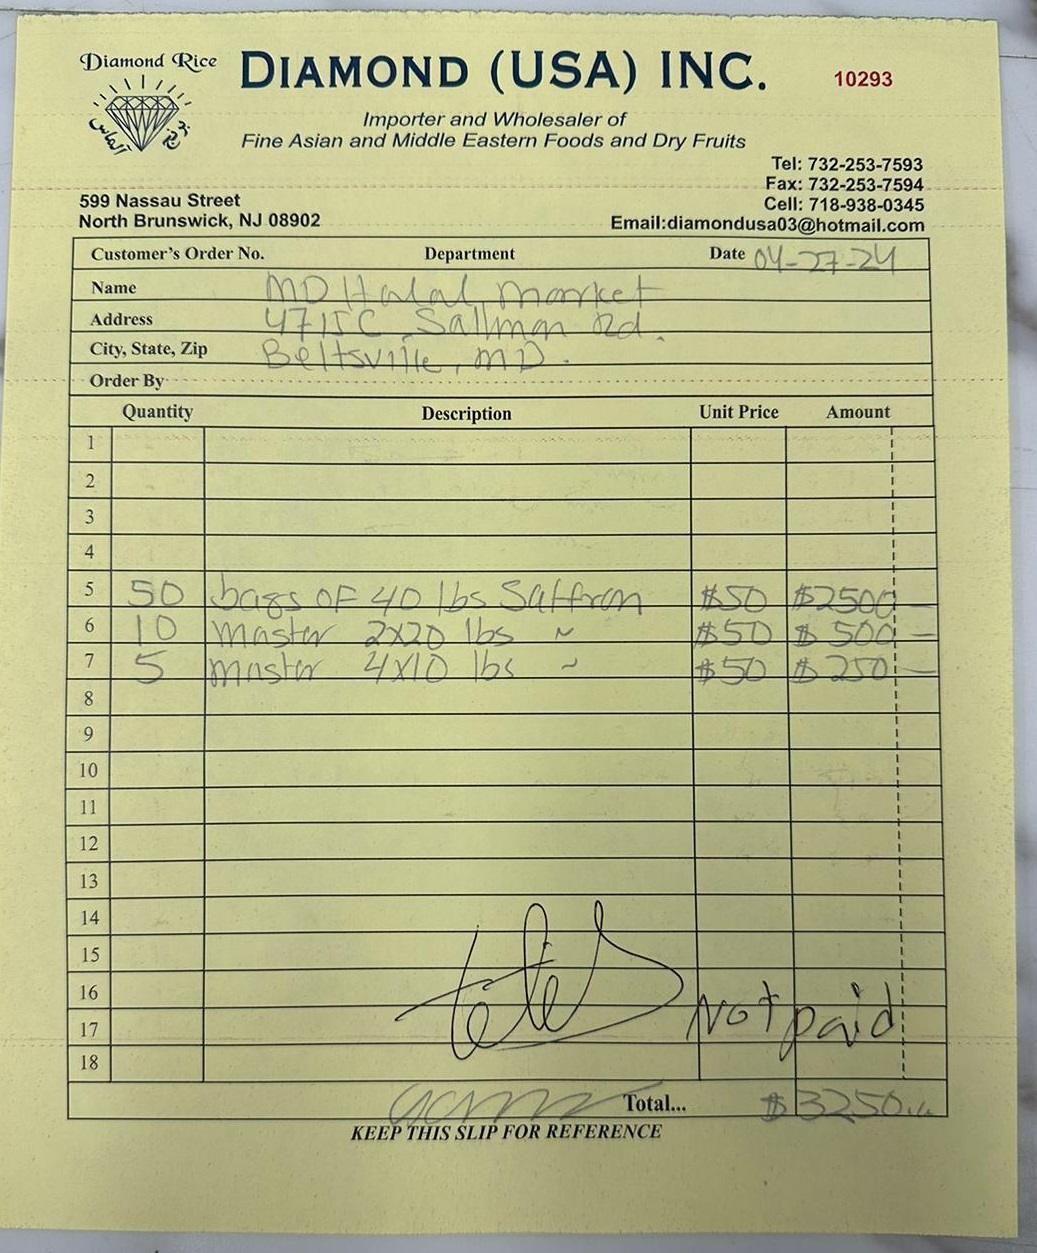 Diamond Rice
DIAMOND (USA) INC.
10293
Importer and Wholesaler of
Fine Asian and Middle Eastern Foods and Dry Fruits
Tel: 732-253-7593
Fax: 732-253-7594
599 Nassau Street
Cell: 718-938-0345
North Brunswick, NJ 08902
Email:diamondusa03@hotmail.com
Customer's Order No. Department Date 04-27-24
Name MD Halal market
Address 4715C Sallman Rd.
City, State, Zip Beltsville, MD.
Order By
Quantity Description Unit Price Amount
1
2
3
4
5 50 bags OF 40 lbs Saffron $50 $2500 —
6 10 master 2x20 lbs ~ $50 $ 500 —
7 5 master 4x10 lbs ~ $50 $ 250 —
8
9
10
11
12
13
14
15
16
17 Not paid
18
Total... $3250
KEEP THIS SLIP FOR REFERENCE